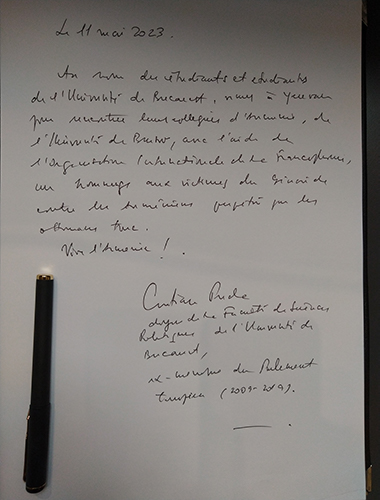 Le 11 mai 2023.
Au nom des étudiants et étudiantes
de l'Université de Bucarest, venus à Yerevan
pour rencontrer leurs collègues d'Arménie, de
l'Université de, avec l'aide de
l'Organisation Internationale de la Francophonie,
un hommage aux victimes du Génocide
contre les Arméniens perpétré par les
ottomans turcs.
Vive l'Arménie!
Cristian Preda
doyen de la Faculté de Sciences
Politiques de l'Université de
Bucarest,
ex-membre du Parlement
européen (2009-2019).